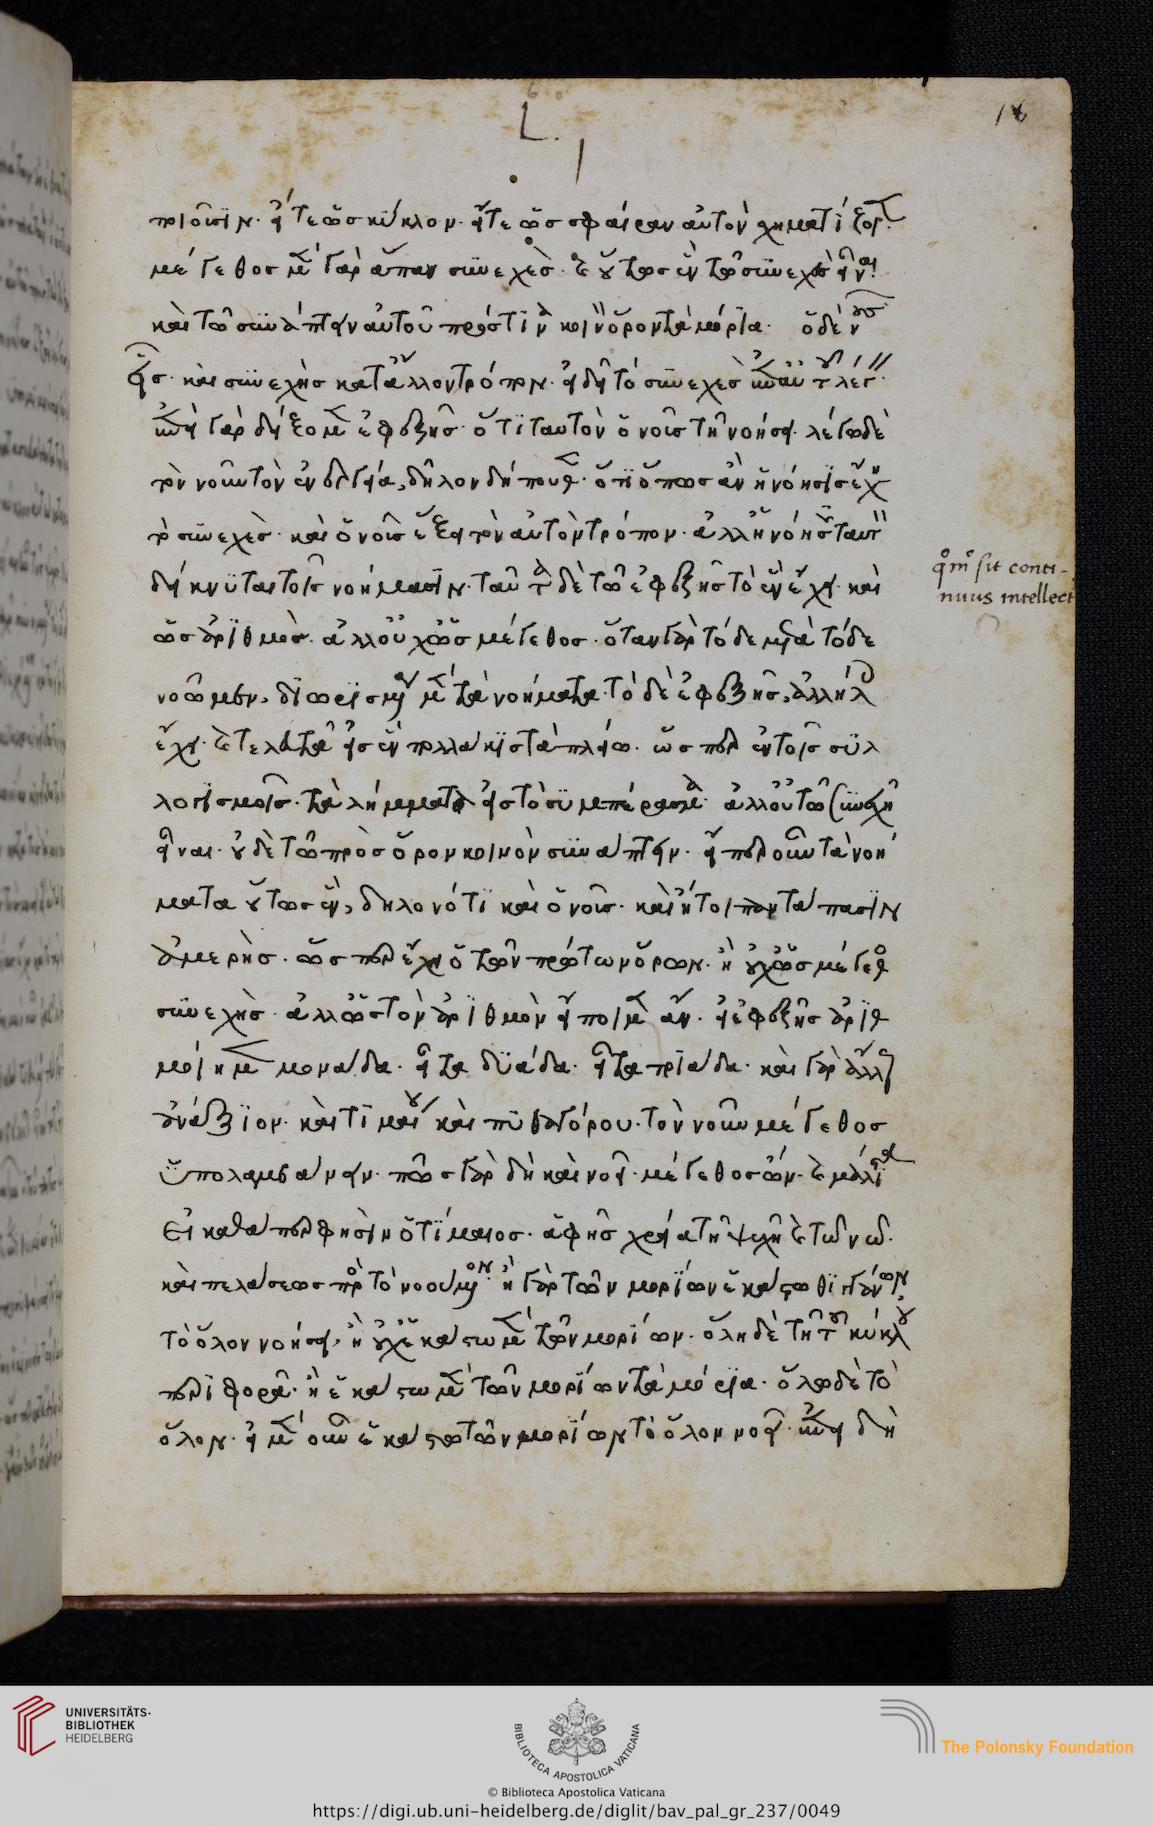 L.
ποιοῦσιν. εἴτε ὡς κύκλον. εἴτε ὡς σφαῖραν αὐτὸν χηματίζοι
μέγεθος μὲν γὰρ ἅπαν συνεχὲς. καὶ οὕτως ἓν τῶ συνεχὲς εἶναι
καὶ τῶ συνάπτειν αὐτοῦ πρός τινα κοινὸν ὅρον τὰ μόρια. ὁ δὲ νοῦς
εἷς. καὶ συνεχὴς κατ' ἄλλον τρόπον. εἰ δὴ τὸ συνεχὲς
γὰρ δείξομεν ἐφεξῆς. ὅτι ταυτὸν ὁ νοῦς τῆ νοήσει. λέγω δὲ
τὸν νοῦν τὸν ἐνεργεία, δῆλον δήπουθεν. ὅτι ὅπως ἂν ἡ νόησις ἔχη
τὸ συνεχὲς. καὶ ὁ νοῦς ἕξει τὸν αὐτὸν τρόπον. ἀλλ' ἡ νόησις ταυτὶ
δείκνυται τοῖς νοήμασιν. ταῦτα δὲ τῶ ἐφεξῆς τὸ ἓν ἔχει. καὶ
ὡς ἀριθμὸς. ἀλλ' οὐχ ὡς μέγεθος. ὅταν γὰρ τόδε μετὰ τόδε
νοῶμεν, διωρισμένα μὲν τὰ νοήματα. τὸ δὲ ἐφεξῆς, ἀλλήλων
ἔχει. καὶ τελευτᾶ εἰς ἓν πολλάκις τὰ πλείω. ὥσπερ ἐν τοῖς συλ
λογισμοῖς. τὰ λήμματα εἰς τὸ συμπέρασμα. ἀλλ' οὐ τῶ συνεχῆ
εἶναι. οὐδὲ τῶ πρὸς ὅρον κοινὸν συνάπτειν. εἴπερ οὖν τὰ νοή
ματα οὕτως ἓν, δηλονότι καὶ ὁ νοῦς. καὶ ἤτοι παντάπασιν
ἀμερὴς. ὥσπερ ἔχει ὁ τῶν πρώτων ὅρων. ἢ οὐχ ὡς μέγεθος
συνεχὴς. ἀλλ' ὡς τὸν ἀριθμὸν εἴποιμεν ἄν. εἰ ἐφεξῆς ἀριθ
μοίημεν μονάδα. εἶτα δυάδα. εἶτα τριάδα. καὶ γὰρ ἄλλως
ἀνάξιον. καὶ τιμαίου καὶ πυθαγόρου. τὸν νοῦν μέγεθος
ὑπολαμβάνειν. πῶς γὰρ δὴ καὶ νοεῖ. μέγεθος ὤν. καὶ μάλιστα
εἰ καθάπερ φησὶν ὁ τίμαιος. ἀφῆς χρεία τῆ ψυχῆ καὶ τῶ νῶ.
καὶ πελάσεως πρὸς τὸ νοούμενον. ἢ γὰρ τῶν μορίων ἑκάστω θιγγάνων
τὸ ὅλον νοήσει, ἢ οὐχ ἑκάστω μὲν τῶν μορίων. ὅλη δὲ τῆ τοῦ κύκλου
περιφορᾶ. ἢ ἑκάστω μὲν τῶν μορίων τὰ μόρια. ὅλω δὲ τὸ
ὅλον. εἰ μὲν οὖν ἑκάστω τῶν μορίων τὸ ὅλον νοεῖ. δὴ
qm̃ sit conti-
nuus intellect
UNIVERSITÄTS-
BIBLIOTHEK
HEIDELBERG
BIBLIOTECA APOSTOLICA VATICANA
The Polonsky Foundation
© Biblioteca Apostolica Vaticana
https://digi.ub.uni-heidelberg.de/diglit/bav_pal_gr_237/0049